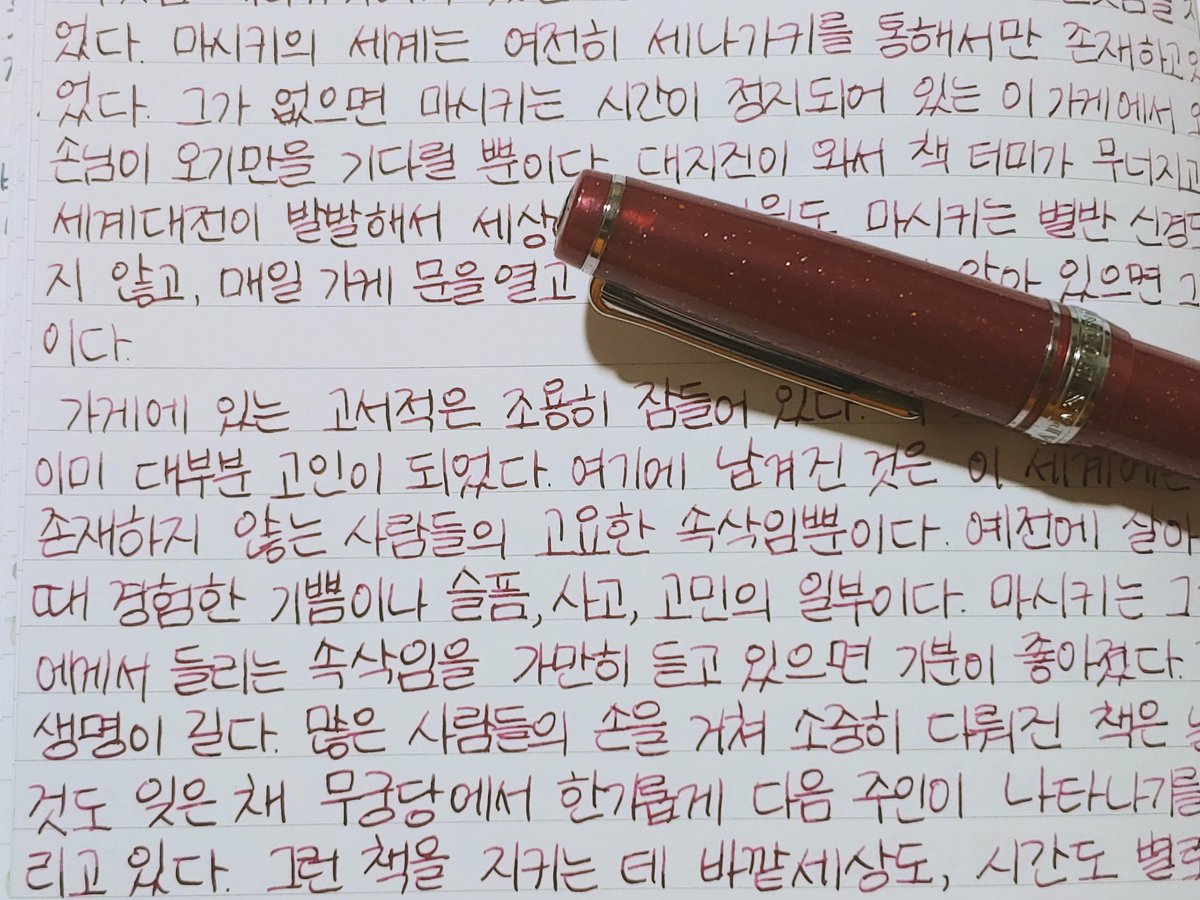 었다. 마시키의 세계는 여전히 세나가키를 통해서만 존재하고
었다. 그가 없으면 마시키는 시간이 정지되어 있는 이 가게에서
손님이 오기만을 기다릴 뿐이다. 대지진이 와서 책 터미가 무너지고
세계대전이 발발해서 세상 마시키는 별반 신경
지 않고, 매일 가게 문을 열고 앉아 있으면 그
이다.
가게에 있는 고서적은 조용히 잠들어 있다.
이미 대부분 고인이 되었다. 여기에 남겨진 것은 이 세계에는
존재하지 않는 사람들의 고요한 속삭임뿐이다. 예전에 살아
때 경험한 기쁨이나 슬픔, 사고, 고민의 일부이다. 마시키는 그
에게서 들리는 속삭임을 가만히 듣고 있으면 기분이 좋아졌다.
생명이 길다. 많은 사람들의 손을 거쳐 소중히 다뤄진 책은
것도 잊은 채 무궁당에서 한가롭게 다음 주인이 나타나기를
리고 있다. 그런 책을 지키는 데 바깥세상도, 시간도